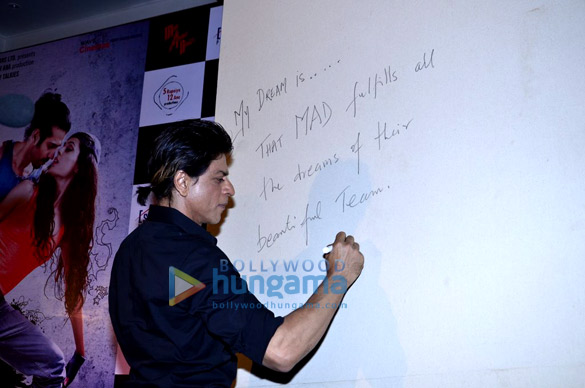 My DREAM is.....
THAT MAD fulfills all
the dreams of their
beautiful Team.
5 Rupaya
12 Ana
BOLLYWOOD
hungama
bollywoodhungama.com